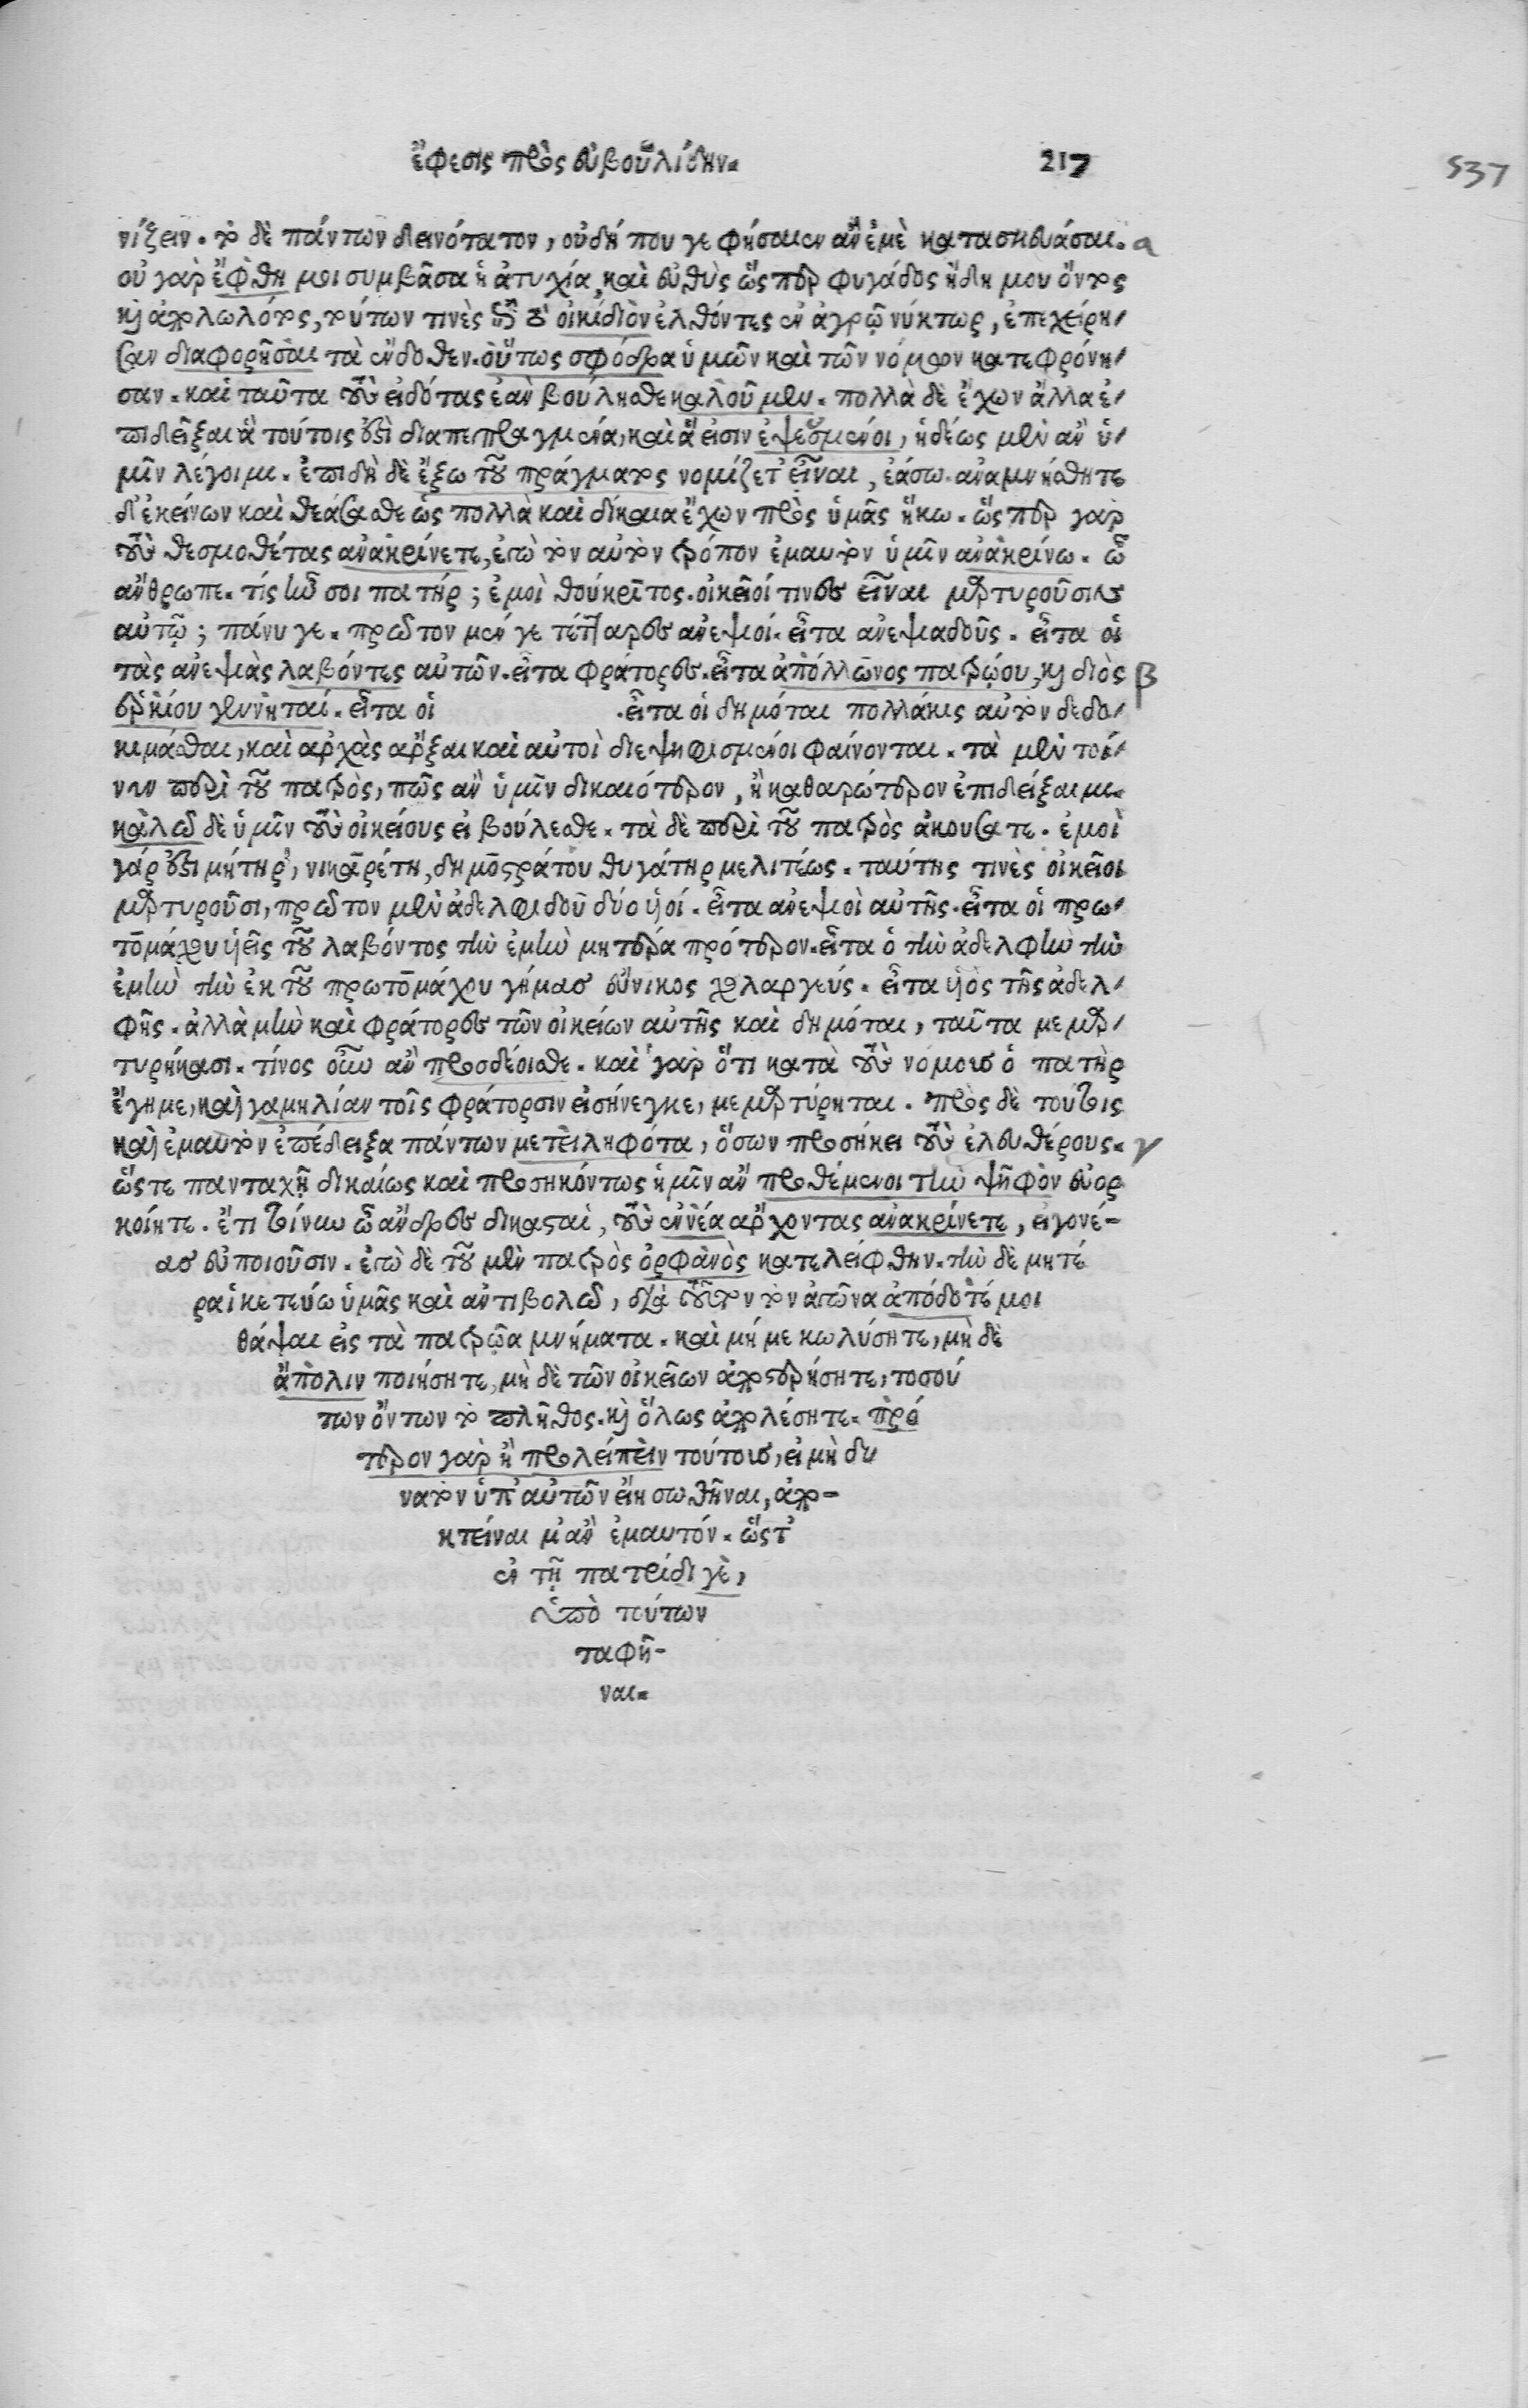 ἔφεσις πρὸς εὐβουλίδην. 217
537
νίζειν. τὸ δὲ πάντων δεινότατον, οὐδήπου γε φήσαιεν ἂν ἐμὲ κατασκευάσαι. a
οὐ γὰρ ἔφθη μοι συμβᾶσα ἡ ἀτυχία, καὶ εὐθὺς ὥσπερ φυγάδος ἤδη μου ὄντος
καὶ ἀπολωλότος, τούτων τινὲς ἐπὶ τὸ οἰκίδιον ἐλθόντες ἐν ἀγρῷ νύκτωρ, ἐπεχείρη/
σαν διαφορῆσαι τὰ ἔνδοθεν. οὕτως σφόδρα ὑμῶν καὶ τῶν νόμων κατεφρόνη/
σαν. καὶ ταῦτα τοὺς εἰδότας ἐὰν βούλησθε καλοῦμεν. πολλὰ δὲ ἔχων ἄλλα ἐ/
πιδεῖξαι ἃ τούτοις ἐστὶ διαπεπραγμένα, καὶ ἅ εἰσιν ἐψευσμένοι, ἡδέως μὲν ἂν ὑ/
μῖν λέγοιμι. ἐπειδὴ δὲ ἔξω τοῦ πράγματος νομίζετ' εἶναι, ἐάσω. ἀναμνήσθητε
δ' ἐκείνων καὶ θεάσασθε ὡς πολλὰ καὶ δίκαια ἔχων πρὸς ὑμᾶς ἥκω. ὥσπερ γὰρ
τοὺς θεσμοθέτας ἀνακρίνετε, ἐγὼ τὸν αὐτὸν τρόπον ἐμαυτὸν ὑμῖν ἀνακρίνω. ὦ
ἄνθρωπε. τίς ἦν σοι πατήρ; ἐμοὶ θούκριτος. οἰκεῖοί τινες εἶναι μαρτυροῦσιν
αὐτῷ; πάνυ γε. πρῶτον μέν γε τέτταρες ἀνεψιοί. εἶτα ἀνεψιαδοῦς. εἶτα οἱ
τὰς ἀνεψιὰς λαβόντες αὐτῶν. εἶτα φράτορες. εἶτα ἀπόλλωνος πατρῴου, καὶ διὸς β
ἑρκίου γεννηταί. εἶτα οἱ .εἶτα οἱ δημόται πολλάκις αὐτὸν δεδο/
κιμάσθαι, καὶ ἀρχὰς ἄρξαι καὶ αὐτοὶ διεψηφισμένοι φαίνονται. τὰ μὲν τοί/
νυν περὶ τοῦ πατρὸς, πῶς ἂν ὑμῖν δικαιότερον, ἢ καθαρώτερον ἐπιδείξαιμι.
καλῶ δὲ ὑμῖν τοὺς οἰκείους εἰ βούλεσθε. τὰ δὲ περὶ τοῦ πατρὸς ἀκούσατε. ἐμοὶ
γάρ ἐστι μήτηρ, νικαρέτη, δημοστράτου θυγάτηρ μελιτέως. ταύτης τινὲς οἰκεῖοι
μαρτυροῦσι, πρῶτον μὲν ἀδελφιδοῦ δύο ὑοί. εἶτα ἀνεψιοὶ αὐτῆς. εἶτα οἱ πρω/
τομάχου ὑεῖς τοῦ λαβόντος τὴν ἐμὴν μητέρα πρότερον. εἶτα ὁ τὴν ἀδελφὴν τὴν
ἐμὴν τὴν ἐκ τοῦ πρωτομάχου γήμας εὔνικος χολαργεύς. εἶτα ὑὸς τῆς ἀδελ/
φῆς. ἀλλὰ μὴν καὶ φράτορες τῶν οἰκείων αὐτῆς καὶ δημόται, ταῦτα μεμαρ/
τυρήκασι. τίνος οὖν ἂν προσδέοισθε. καὶ γὰρ ὅτι κατὰ τοὺς νόμους ὁ πατὴρ
ἔγημε, καὶ γαμηλίαν τοῖς φράτορσιν εἰσήνεγκε, μεμαρτύρηται. πρὸς δὲ τούτοις
καὶ ἐμαυτὸν ἐπέδειξα πάντων μετειληφότα, ὅσων προσήκει τοὺς ἐλευθέρους. γ
ὥστε πανταχῇ δικαίως καὶ προσηκόντως ἡμῖν ἂν προθέμενοι τὴν ψῆφον εὐορ
κοίητε. ἔτι τοίνυν ὦ ἄνδρες δικασταὶ, τοὺς ἐννέα ἄρχοντας ἀνακρίνετε, εἰ γονέ-
ας εὐποιοῦσιν. ἐγὼ δὲ τοῦ μὲν πατρὸς ὀρφανὸς κατελείφθην. τὴν δὲ μητέ
ρα ἱκετεύω ὑμᾶς καὶ ἀντιβολῶ, διὰ τοῦτον τὸν ἀγῶνα ἀπόδοτέ μοι
θάψαι εἰς τὰ πατρῷα μνήματα. καὶ μή με κωλύσητε, μὴ δὲ
ἄπολιν ποιήσητε, μὴ δὲ τῶν οἰκείων ἀποστερήσητε, τοσού
των ὄντων τὸ πλῆθος. καὶ ὅλως ἀπολέσητε. πρό
τερον γὰρ ἢ προλείπειν τούτους, εἰ μὴ δυ
νατὸν ὑπ' αὐτῶν εἴη σωθῆναι, ἀπο-
κτείναιμ' ἂν ἐμαυτόν. ὥστ'
ἐν τῇ πατρίδι γὲ,
ὑπὸ τούτων
ταφῆ-
ναι.